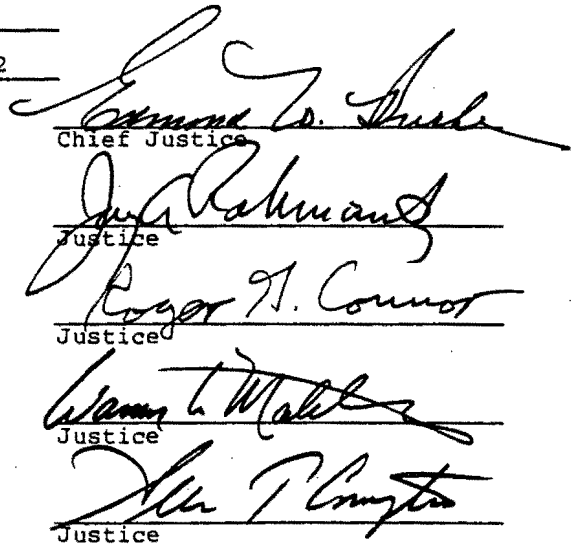 2
Edmond W. Burke
Chief Justice
Jay A Rabinowitz
Justice
Roger G. Connor
Justice
Warren W Matthews
Justice
Allen T Compton
Justice